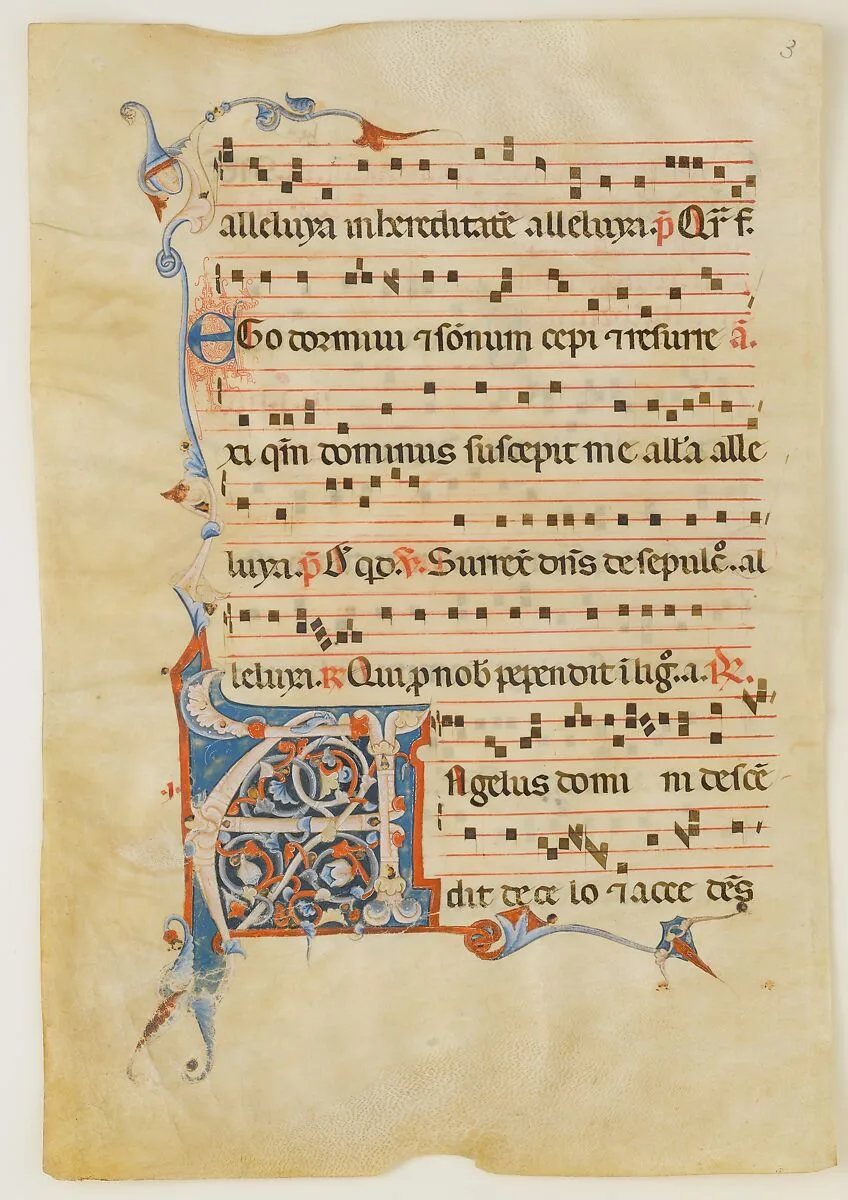 3
alleluya in hereditatē alleluya. p̄ Qr̄ f.
EGo dormiui ⁊ sōnum cepi ⁊ resurre ā.
xi qm̄ dominus suscepit me all'a alle
luya. p̄ qd. Surrex̄ dn̄s de sepulc̄. al
leluya. R Qui p nob pependit ī lig̊. a. R.
Agelus domi ni descē
dit de ce lo ⁊ acce dēs